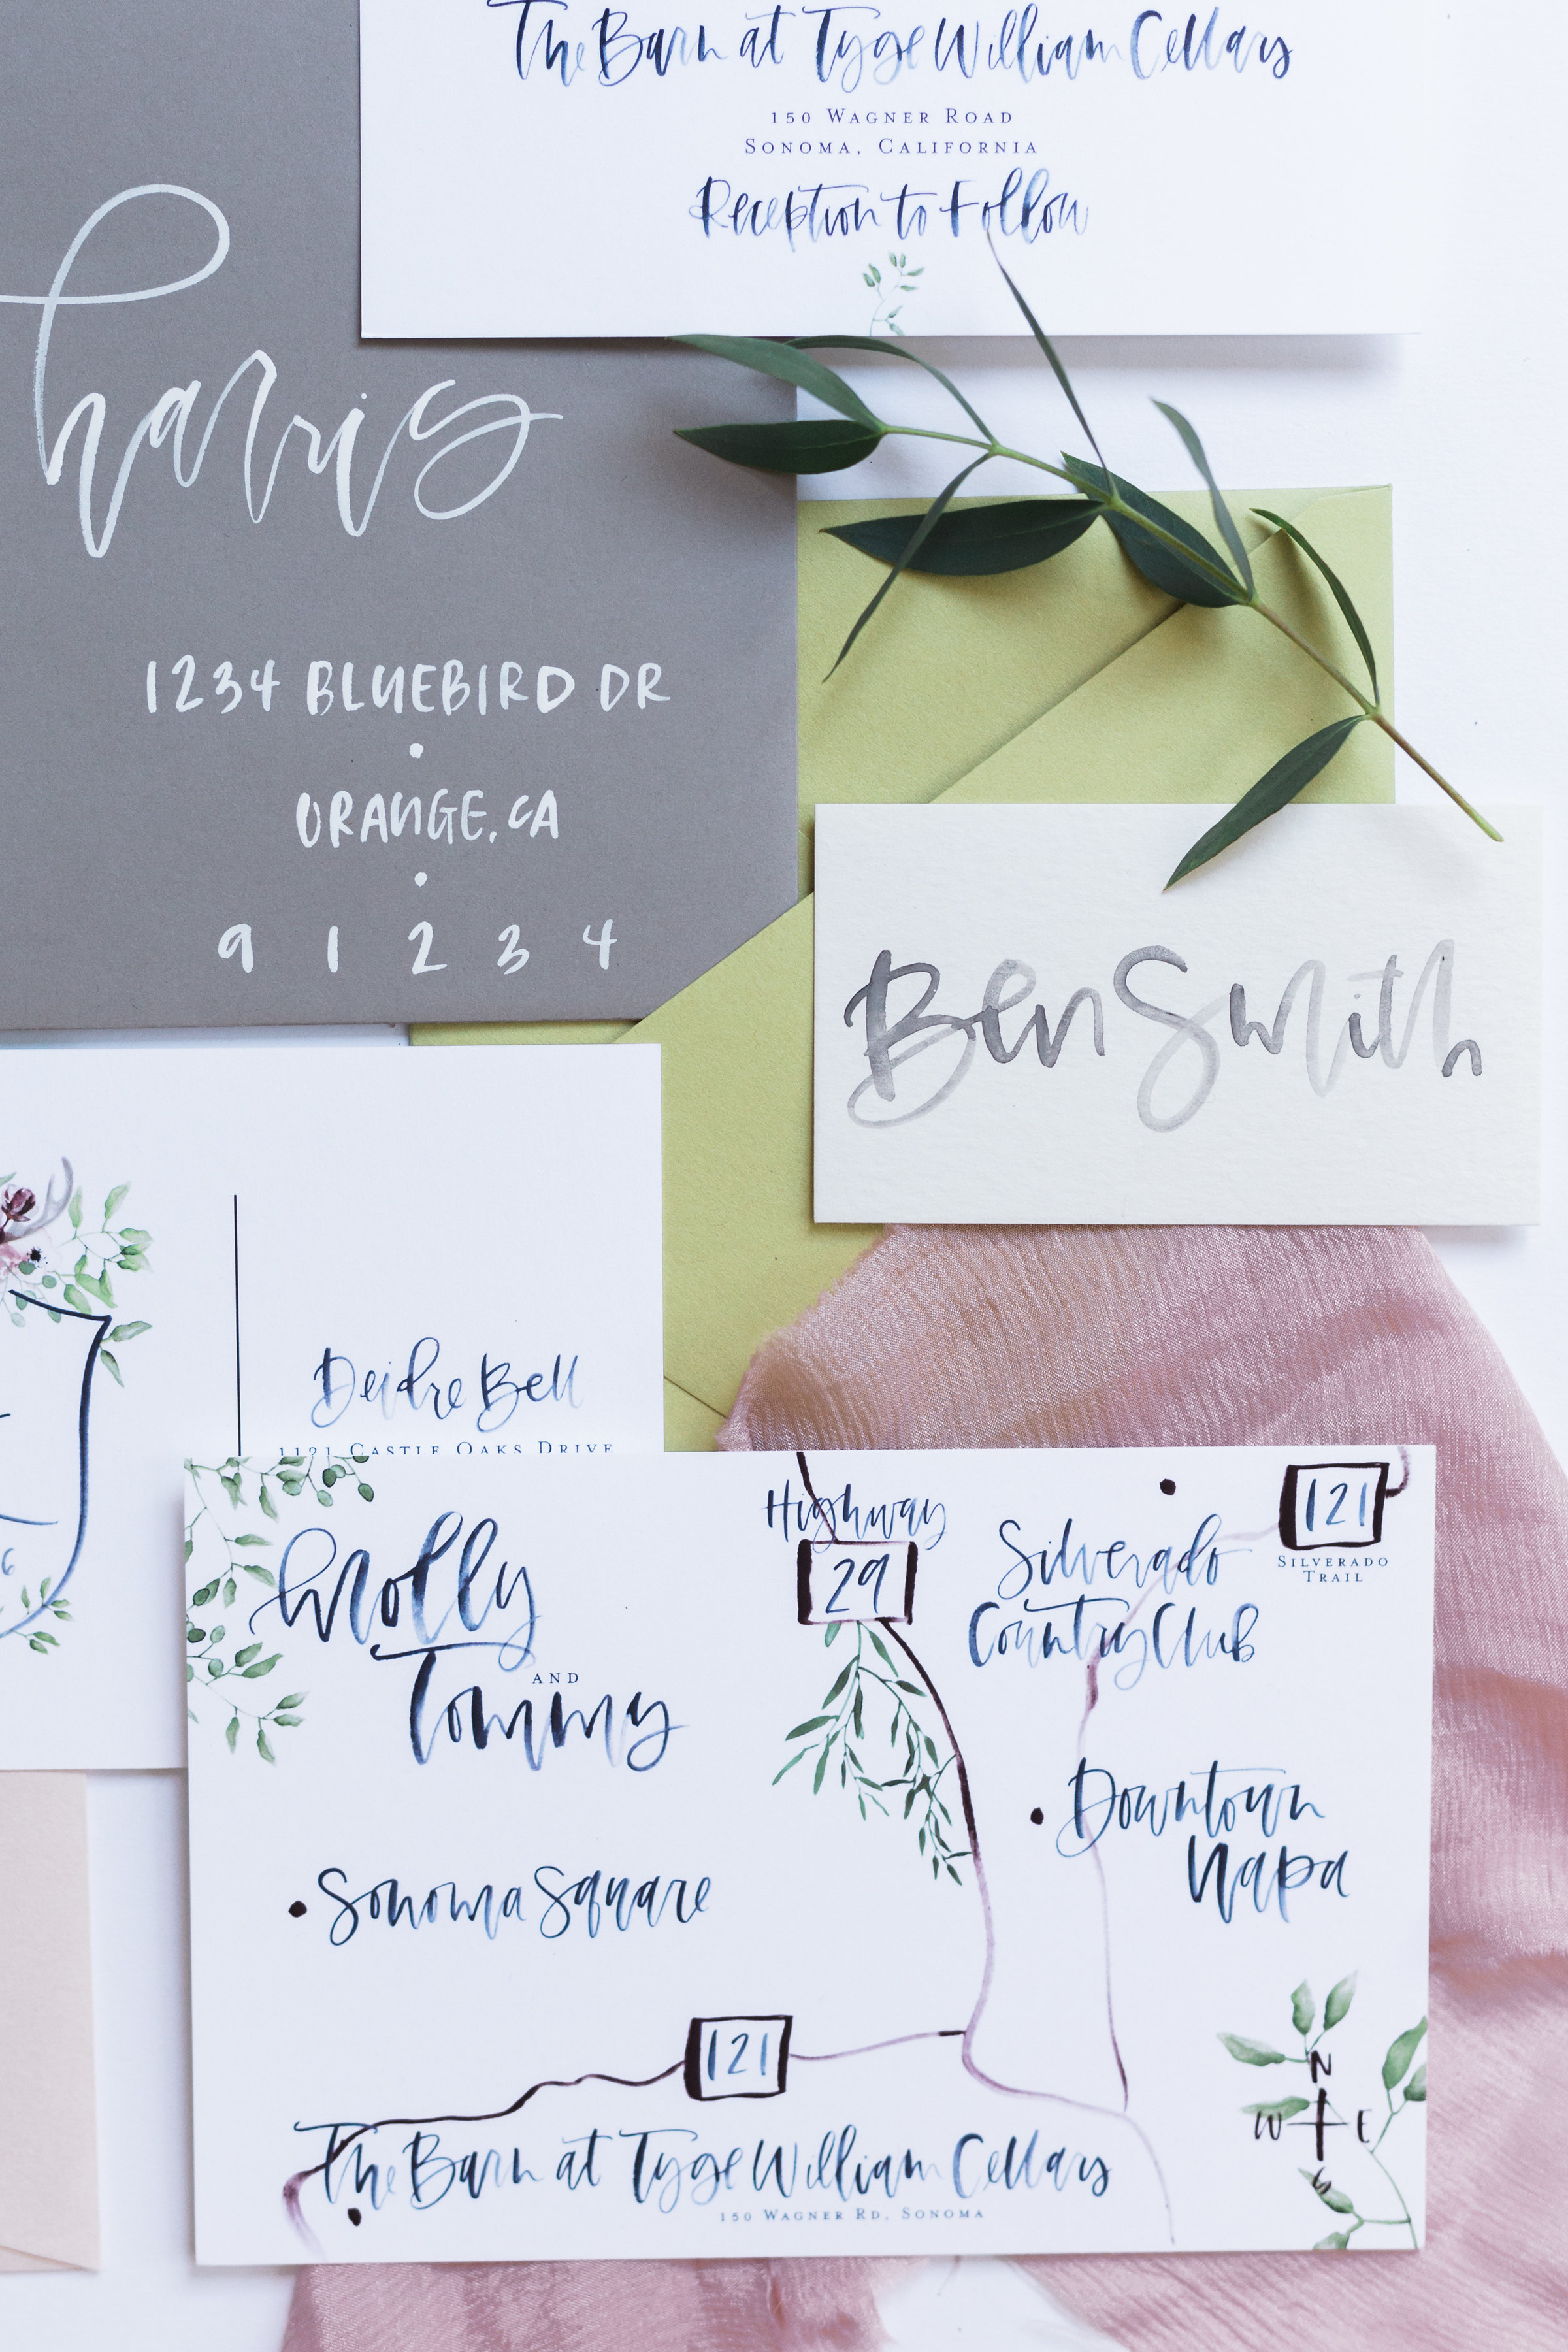 The Barn at Tyge William Cellars
150 Wagner Road
Sonoma, California
Reception to Follow
harris
1234 BLUEBIRD DR
ORANGE, CA
9 1 2 3 4
Ben Smith
Deidre Bell
1121 Castle Oaks Drive
6
Molly
and
Tommy
Highway
29
Silverado
Country Club
121
Silverado
Trail
Downtown
Napa
Sonoma Square
121
The Barn at Tyge William Cellars
150 Wagner Rd, Sonoma
N
W E
S